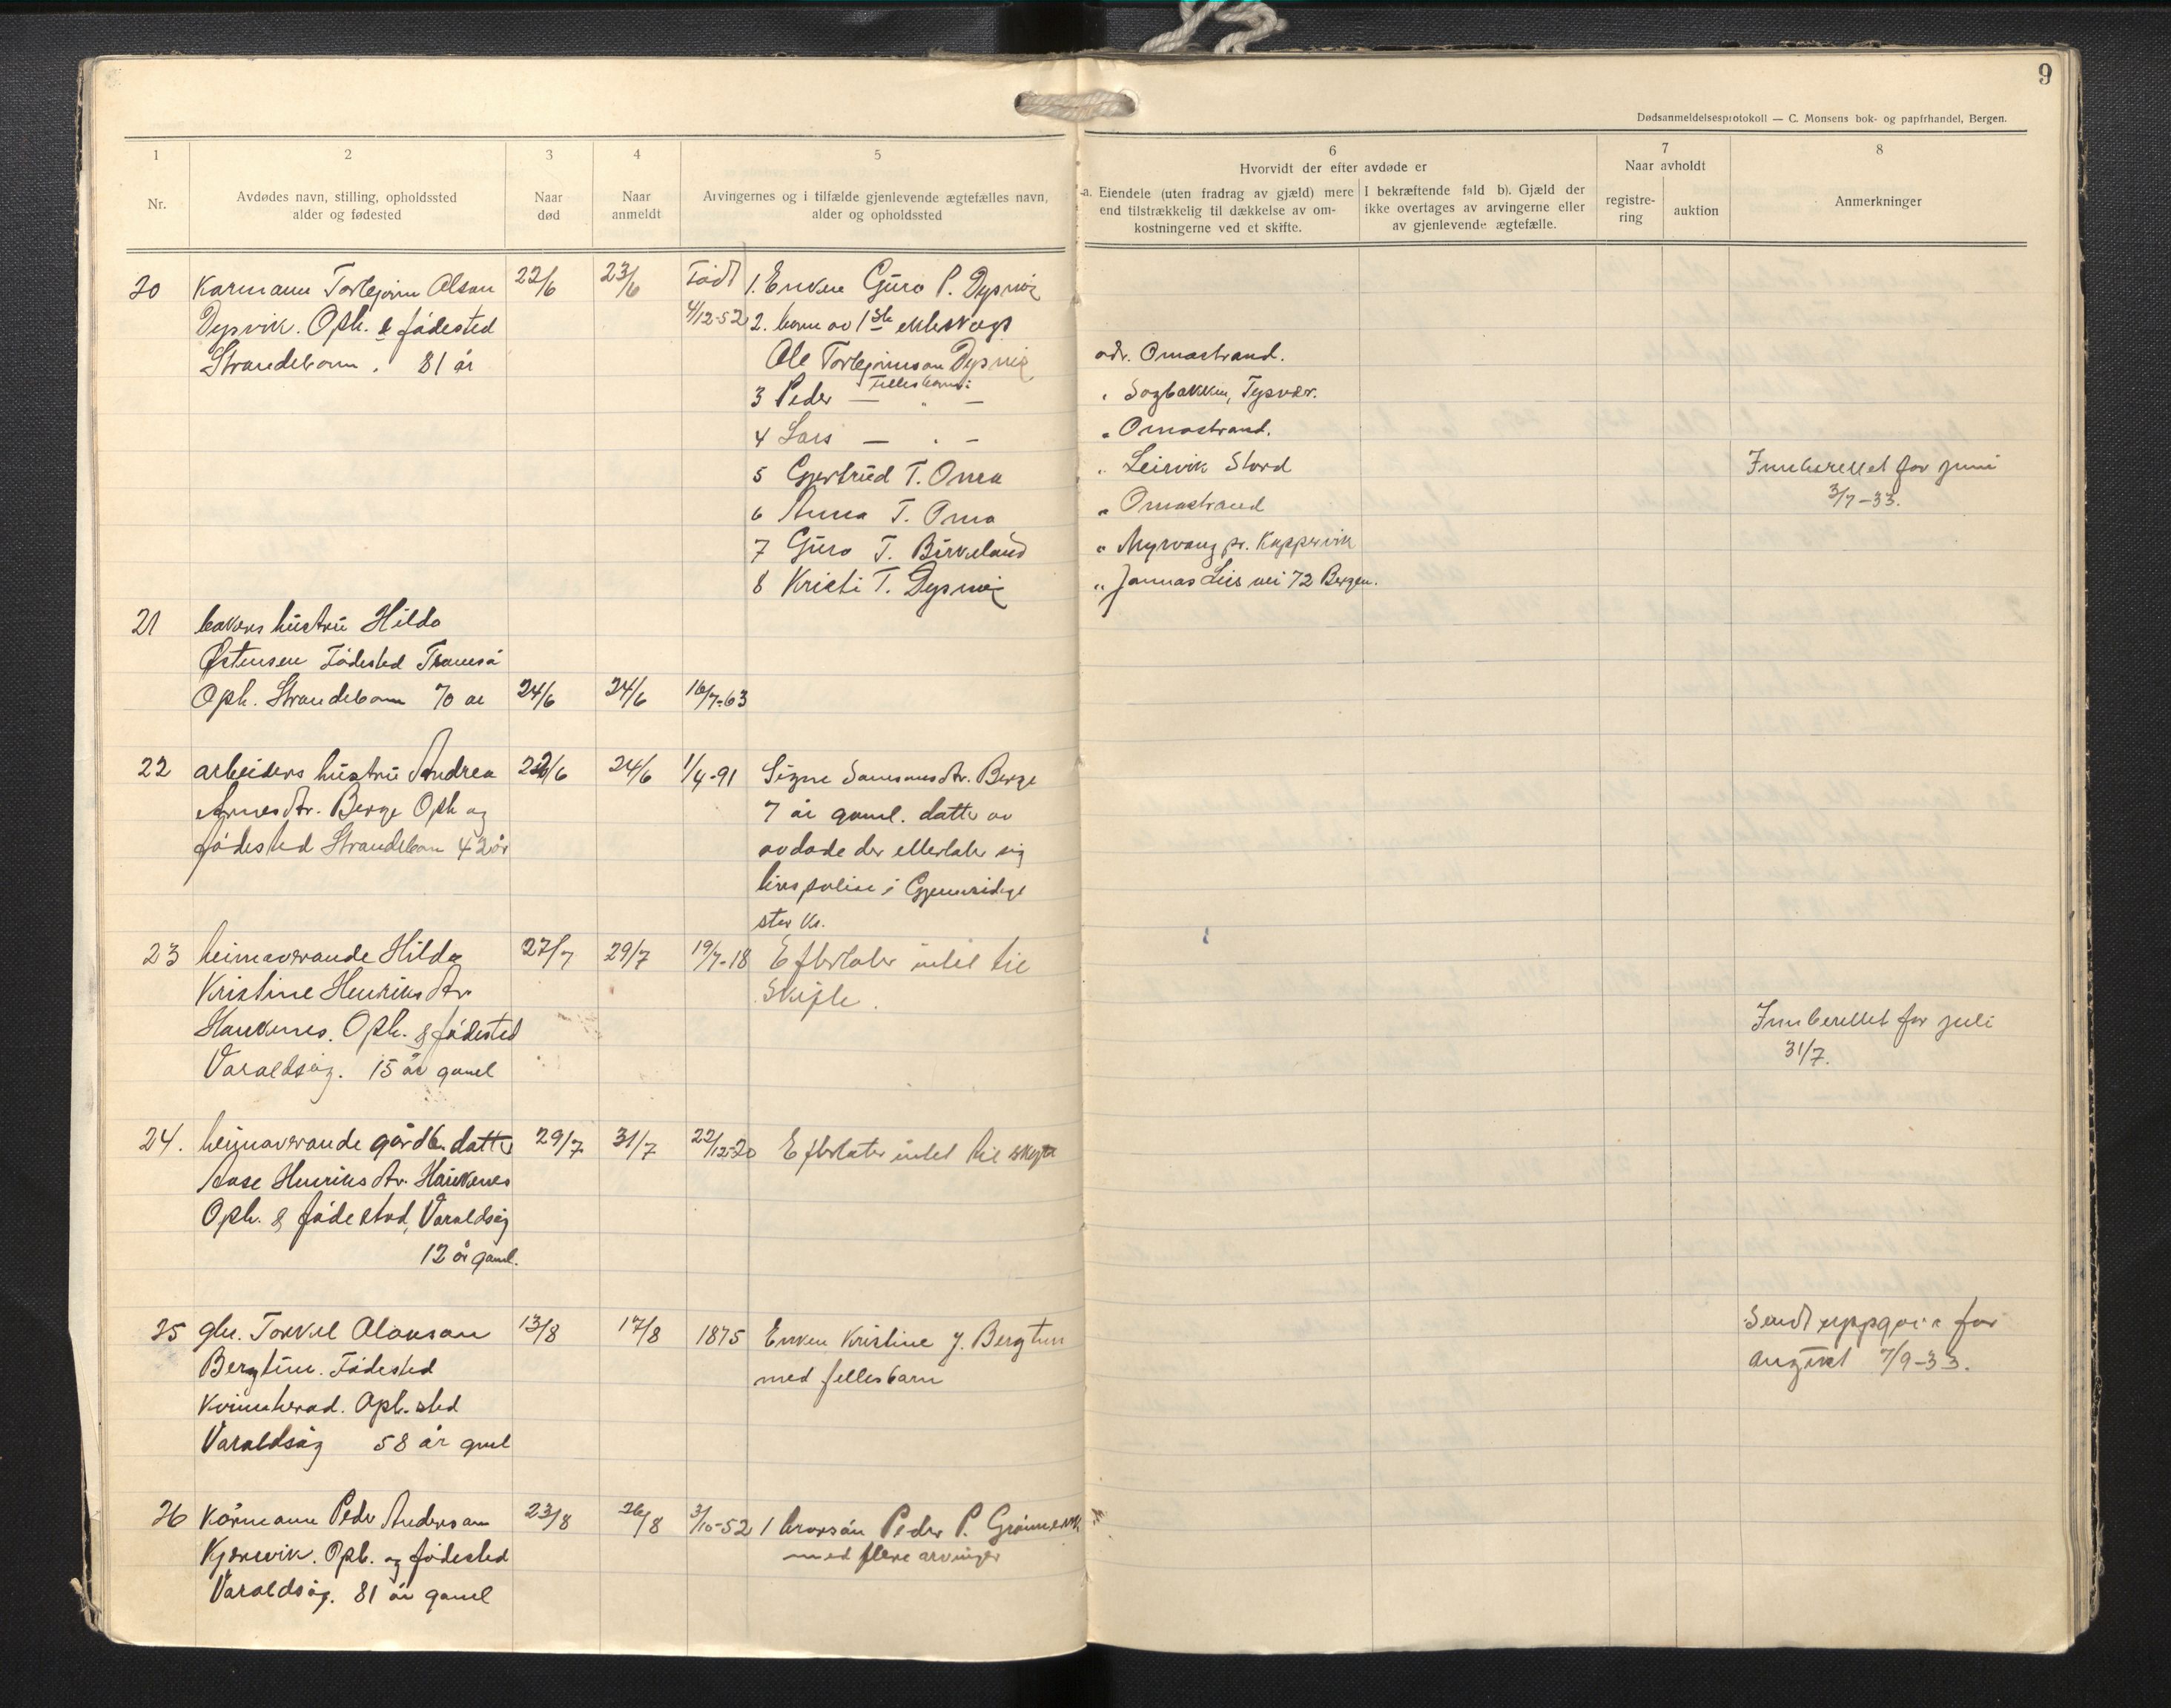 9
Dødsanmeldelsesprotokoll — C. Monsens bok- og papirhandel, Bergen.
1
2
3
4
5
6
7
8
Nr.
Avdødes navn, stilling, opholdssted
alder og fødested
Naar
død
Naar
anmeldt
Arvingernes og i tilfælde gjenlevende ægtefælles navn,
alder og opholdssted
Hvorvidt der efter avdøde er
a. Eiendele (uten fradrag av gjæld) mere
end tilstrækkelig til dækkelse av om-
kostningerne ved et skifte.
I bekræftende fald b). Gjæld der
ikke overtages av arvingerne eller
av gjenlevende ægtefælle.
Naar avholdt
registre-
ring
auktion
Anmerkninger
20 Karmann Torbjørn Olson 22/6 23/6 Født 1. Enken Guro P. Dysvik
Dysvik. Oph. & födested 4/12-52 2. barn av 1ste ekteskap
Strandebarm. 81 år Ole Torbjörnson Dysvik adr. Omastrand.
Fellesbarn:
3 Peder — " — " Sagbakken, Tysvær.
4 Lars — " — " Omastrand.
5 Gjertrud T. Oma " Leirvik Stord
6 Anna T. Oma " Omastrand
7 Guro T. Birkeland " Myrvang pr. Koppervik
8 Kristi T. Dysvik " Jonnas Lies vei 72 Bergen.
Innberettet for juni
3/7-33.
21 bakers hustru Hilda
Østensen Födested Tromsö
Oph. Strandebarm 70 år 24/6 24/6 16/7-63
22 arbeiders hustru Andrea 22/6 24/6 1/4-91 Signe Samsonsdtr. Berge
Arnesdtr. Berge Oph og 7 år gaml. datter av
födested Strandebarm 42 år avdøde der etterlater sig
livspolise i
stor kr.
23 heimaverande Hilda 27/7 29/7 19/7-18 Efterlater intet til
Kristine Henriksdtr. Skifte.
Haukenes. Oph. & födested
Varaldsøy. 15 år gaml
Innberettet for juli
31/7.
24. heimaverande gårdbr. datter 29/7 31/7 22/12-20 Efterlater intet til skifte
Aase Henriksdtr. Haukenes
Oph. & födested, Varaldsøy
12 år gaml.
25 gbr. Torkel Olavson 13/8 17/8 1875 Enken Kristine J. Bergtun
Bergtun. Födested med fellesbarn
Kvinnherad. Oph. sted
Varaldsøy 58 år gml
Sendt uppgave for
august 7/9-33.
26 Kårmann Peder Anderson 23/8 26/8 3/10-52 1 brorsön Peder P.
Kjerevik. Oph. og födested med flere arvinger
Varaldsøy. 81 år gaml